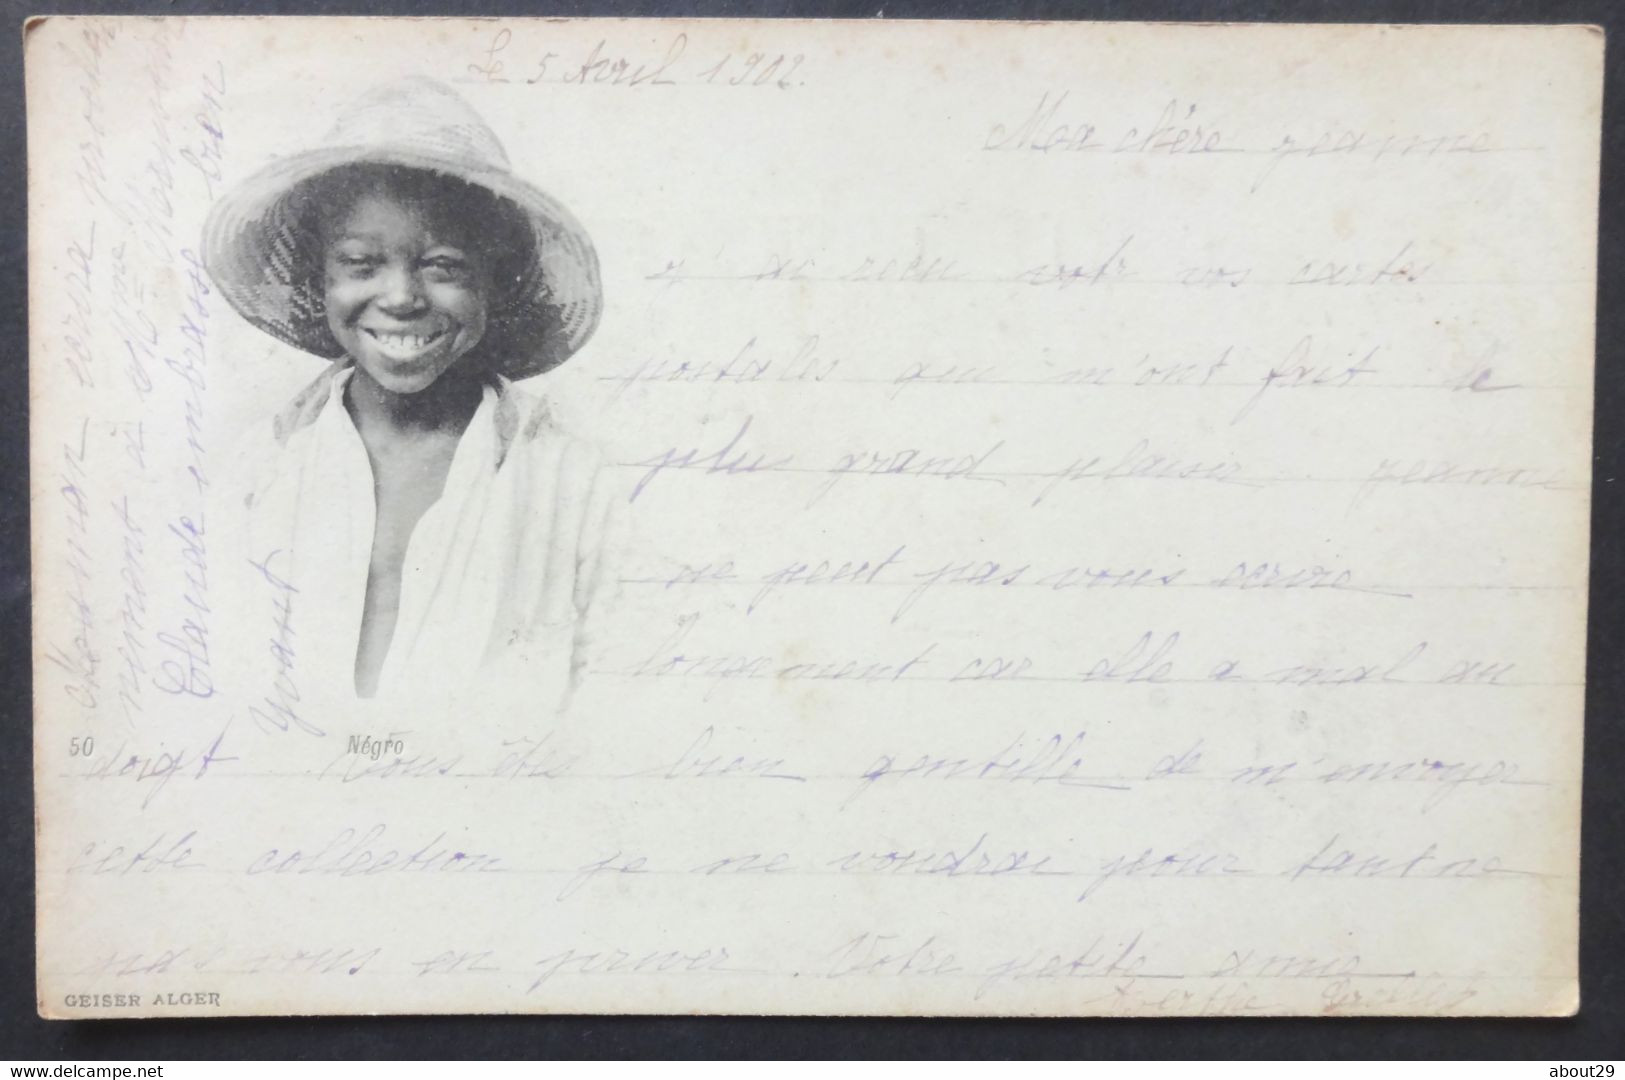 Le 5 Avril 1902.
Ma chére jeanne
j' ai recu votr vos cartes
postales qui m'ont fait le
plus grand plaisir. jeanne
ne peut pas vous ecrire
longement car elle a mal au
doigt. Vous êtes bien gentille de m'envoyer
cette collection je ne voudrai pour tant ne
pas vous en priver. Votre petite amie
Maman ecrira prochai
nement à Mme
Claude embrasse bien
Yvant
50
Négro
GEISER ALGER
delcampe.net
about29